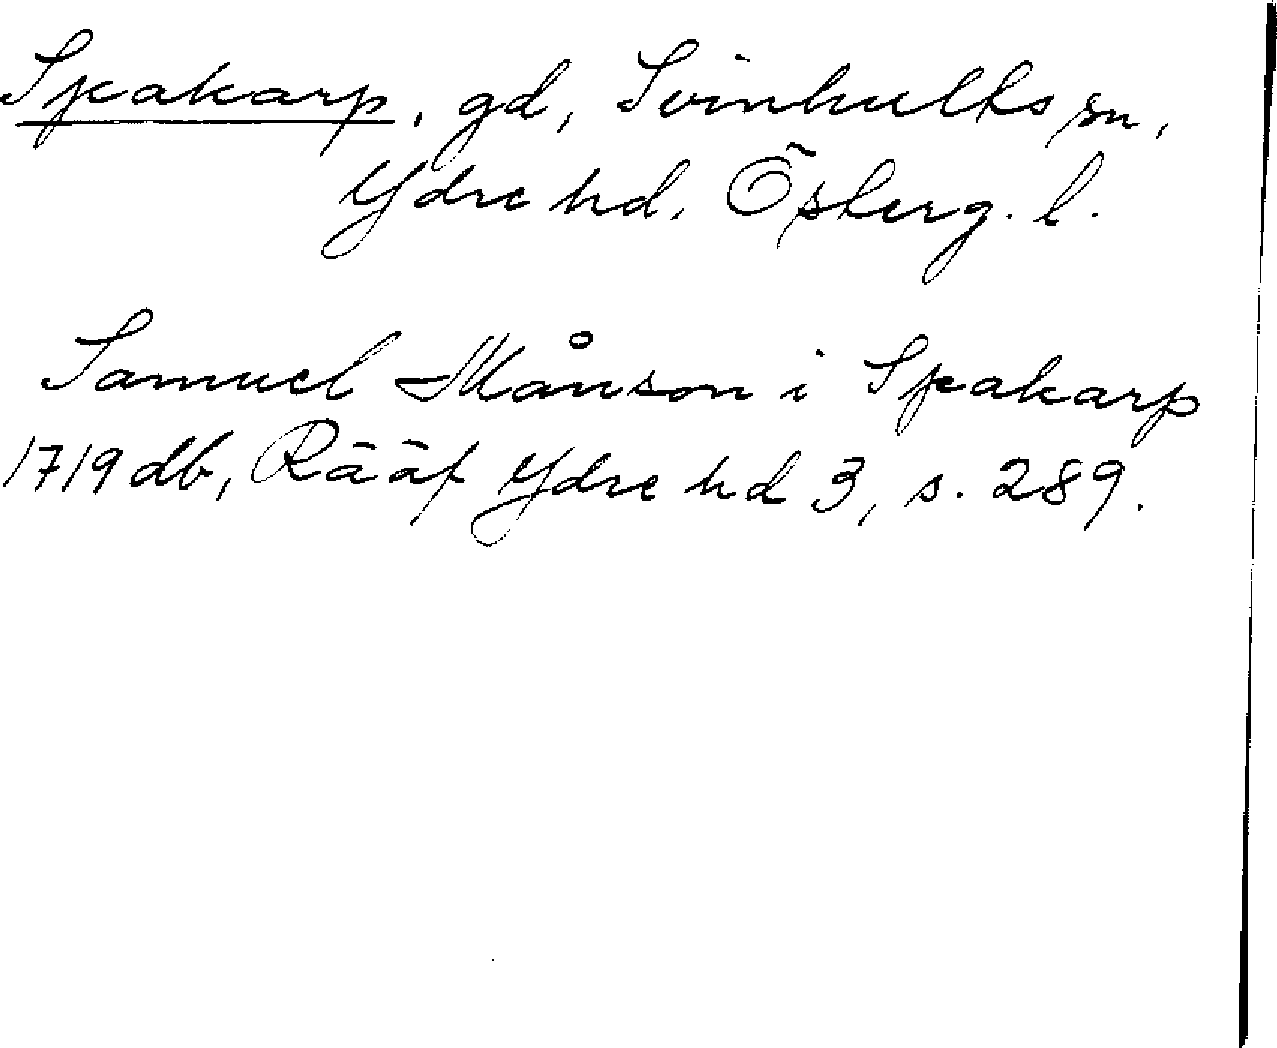 Spakarp, gd, Svinhults sn,
Ydre hd. Österg. l.
Samuel Månson i Spakarp
1719 db, Rääf Ydre hd 3, s. 289.